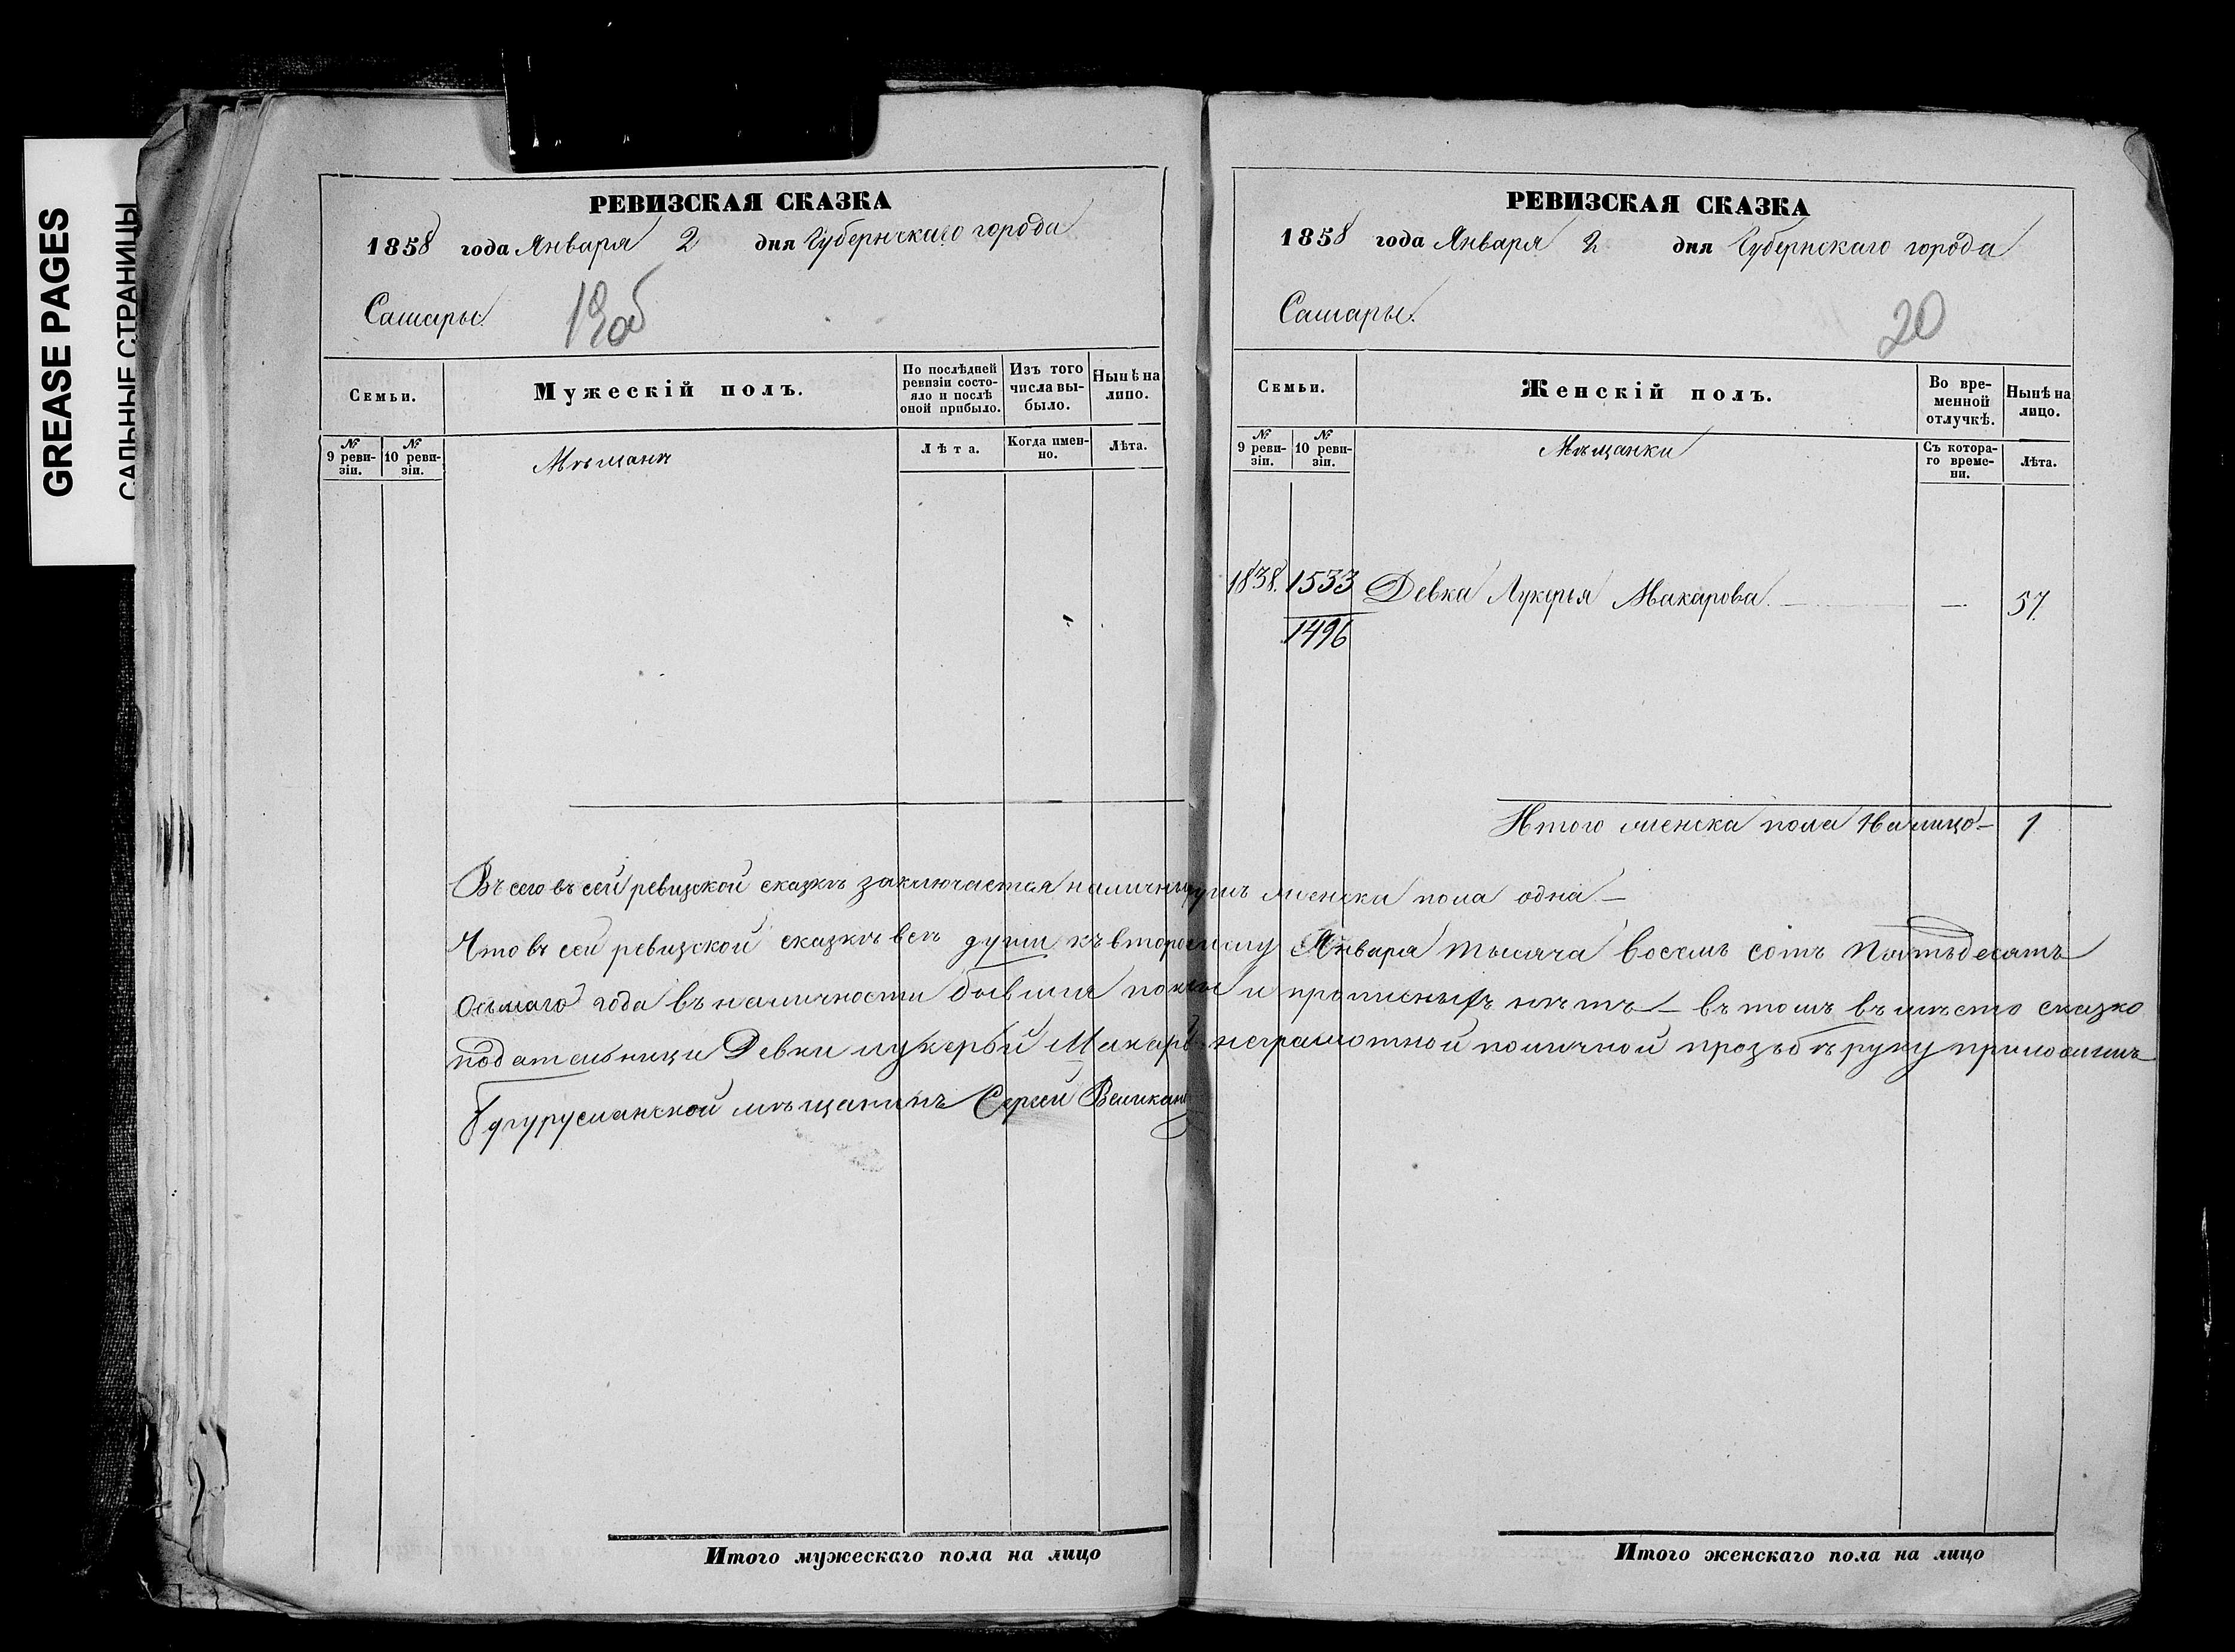 GREASE PAGES
САЛЬНЫЕ СТРАНИЦЫ
РЕВИЗСКАЯ СКАЗКА
1858 года Января 2 дня Губернскаго города
Самары.
19об
Семьи.
Мужескій полъ.
По послѣдней ревизіи состояло и послѣ оной прибыло.
Изъ того числа выбыло.
Нынѣ на лицо.
№ 9 ревизіи.
№ 10 ревизіи.
Мѣщане
Лѣта.
Когда именно.
Лѣта.
Итого мужескаго пола на лицо
РЕВИЗСКАЯ СКАЗКА
1858 года Января 2 дня Губернскаго города
Самары.
20
Семьи.
Женскій полъ.
Во временной отлучкѣ.
Нынѣ на лицо.
№ 9 ревизіи.
№ 10 ревизіи.
Мѣщанки
Съ котораго времени.
Лѣта.
1838. 1533 Девка Лукерья Макарова. — — 57.
1496
Итого женска пола на лицо — 1
Въсего въ сей ревизской сказкѣ заключается налично душъ женска пола одна —
Что въ сей ревизской сказкѣ всѣ души къ второму Января тысяча восемь сотъ пятьдесятъ
осьмаго года въ наличности бывшия и прописныхъ нѣтъ — въ томъ въместо сказко
подательници Девки лукерьи Макаровой неграмотной поличной прозьбѣ руку приложилъ
Бугурусланской мѣщанинъ Сергей Великанов
Итого женскаго пола на лицо